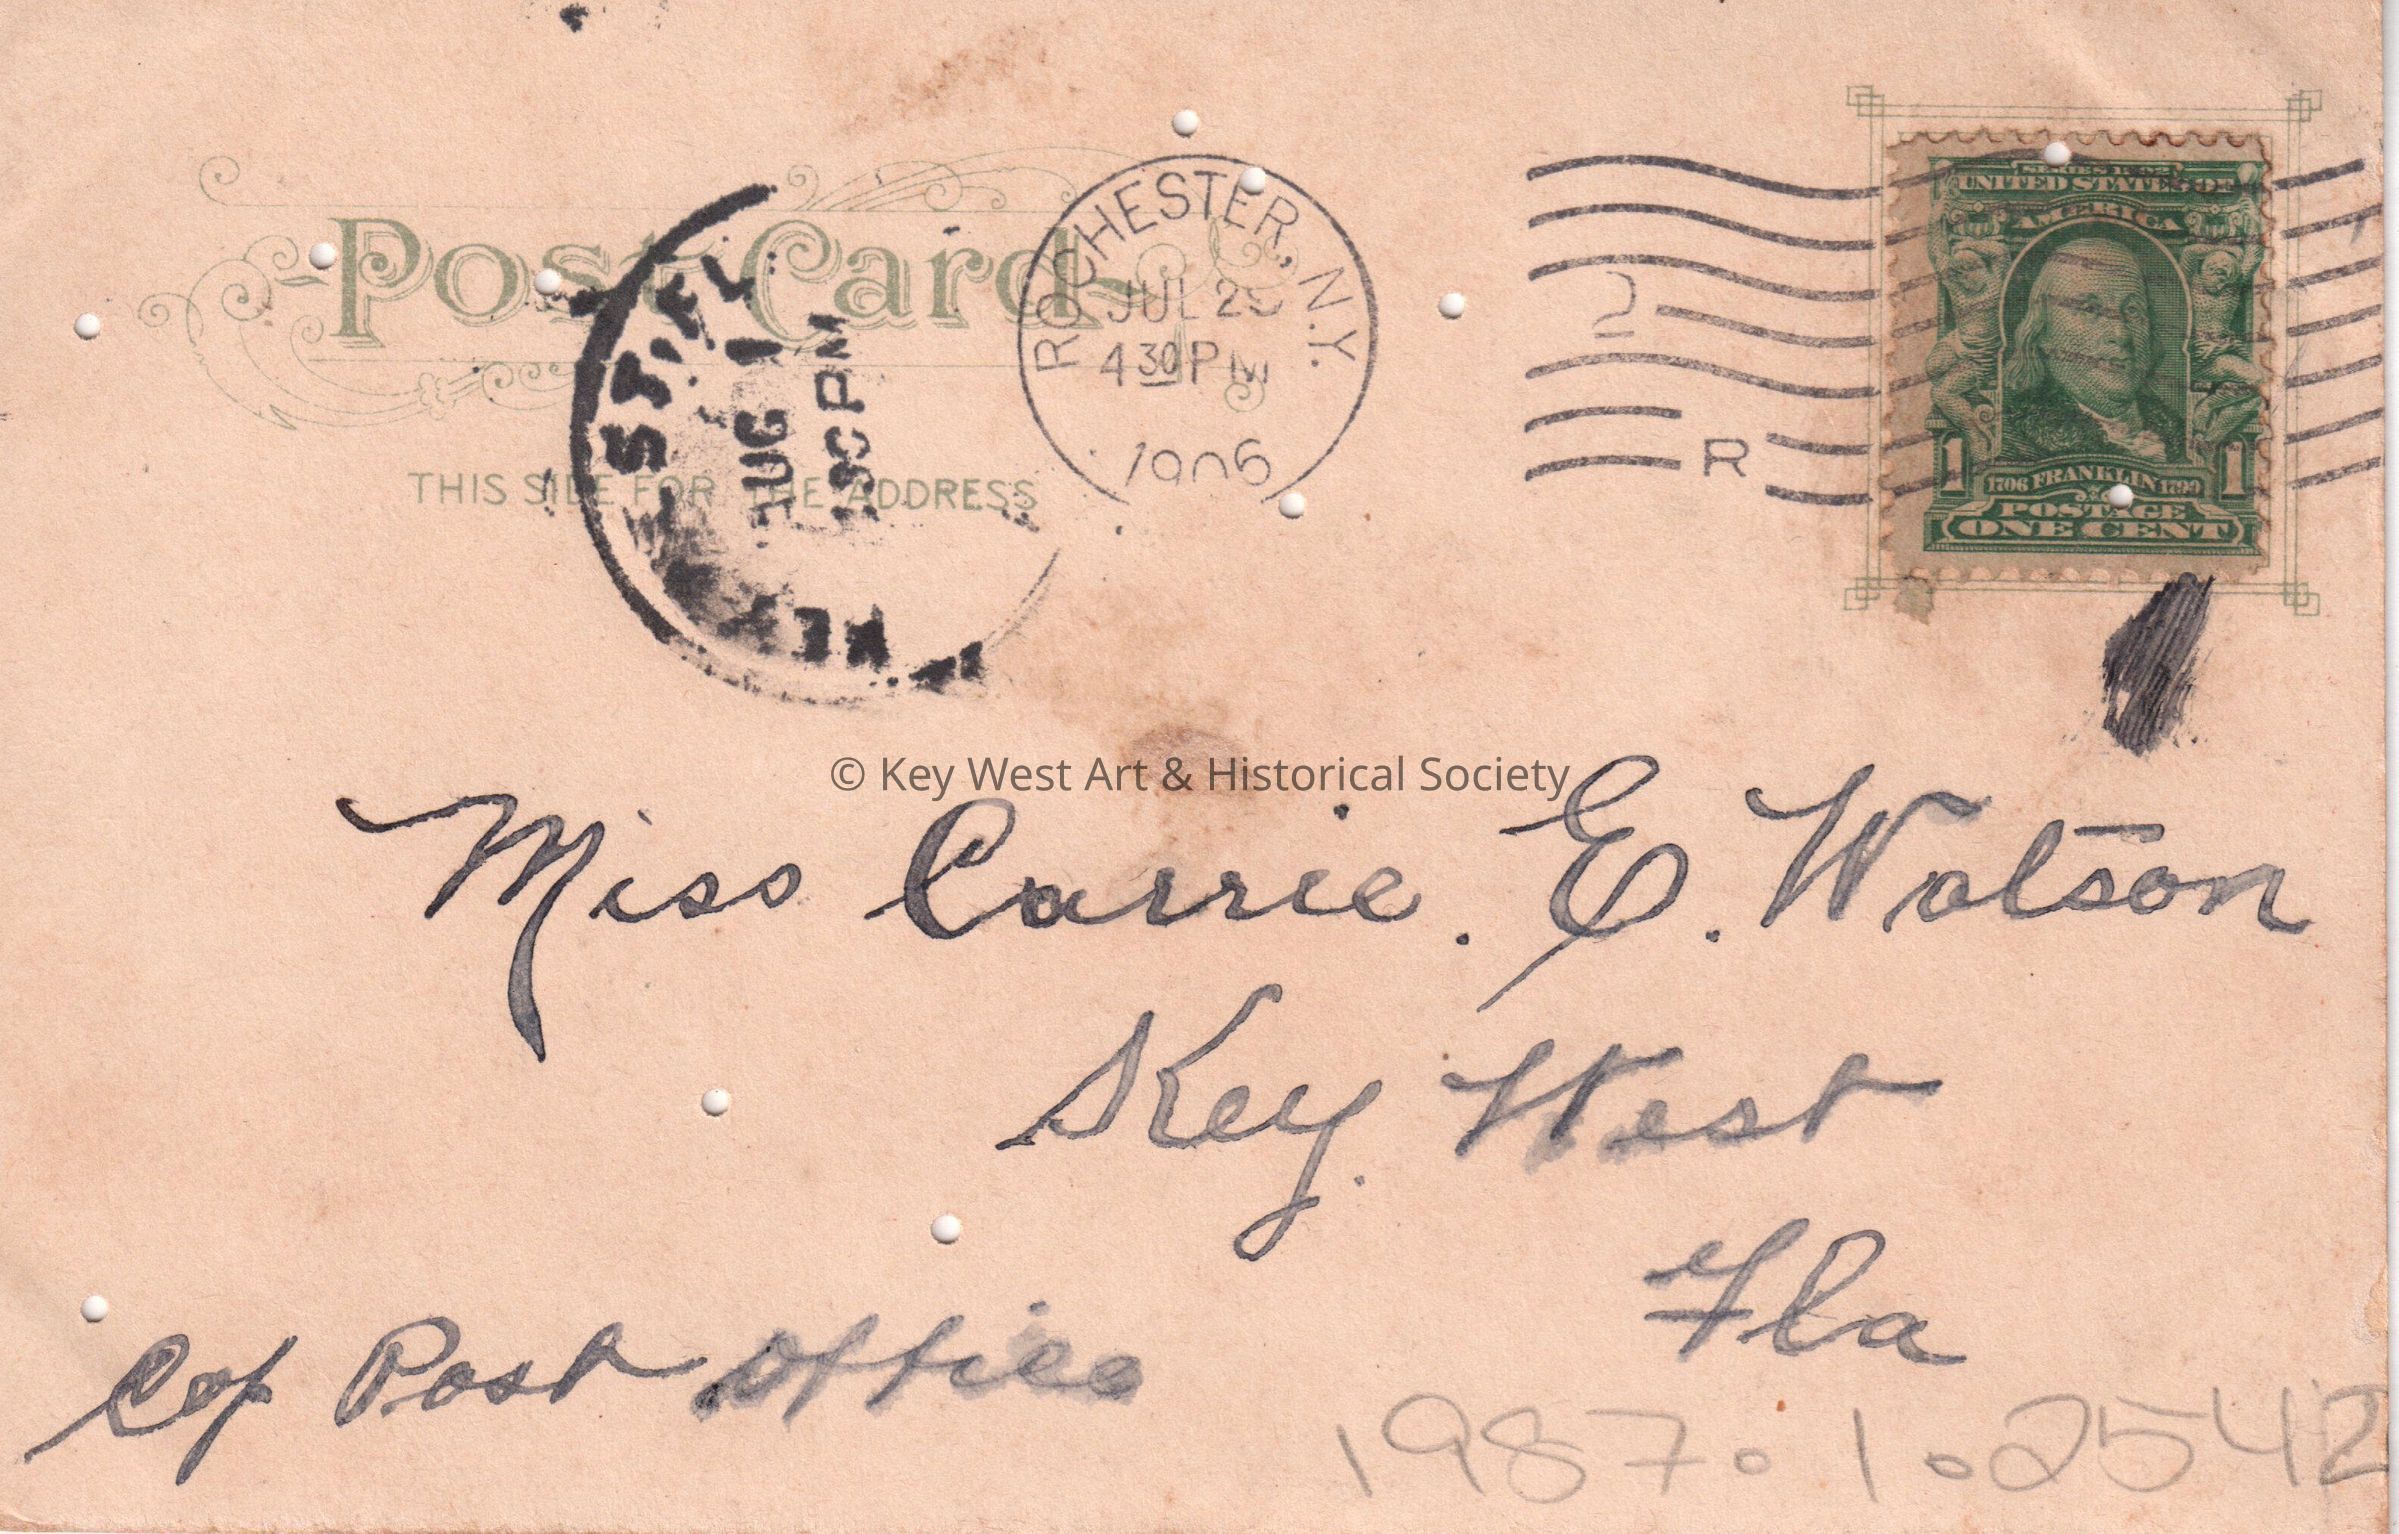 Post Card
THIS SIDE FOR THE ADDRESS
ST, FL
AUG 1
PM
KEY
ROCHESTER, N.Y.
JUL 2
4 30 PM
1906
R
SERIES 1902
UNITED STATES OF
AMERICA
1 1
1706 FRANKLIN 1790
POSTAGE
ONE CENT
© Key West Art & Historical Society
Miss Carrie. E. Watson
Key. West
Fla
Post Office
1987.1.2542